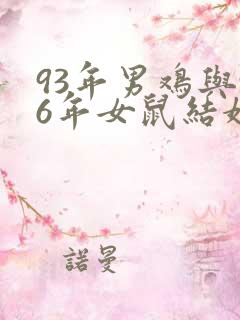 93年男鸡與
6年女鼠結婚
諾曼